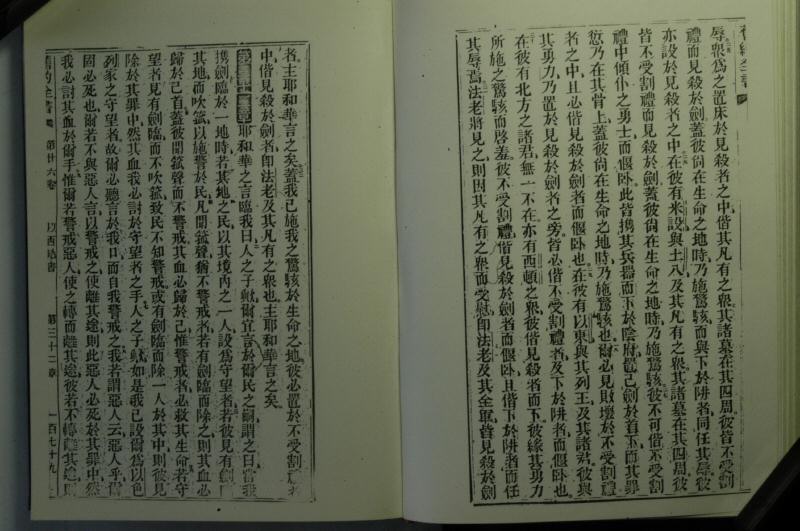 辱衆爲之置床於見殺者之中偕其凡有之衆其諸墓在其四周彼皆不受割
禮而見殺於劍蓋彼尙在生命之地時乃施驚駭而與下於阱者同任其辱彼
亦設於見殺者之中在彼有米設與土八及其凡有之衆其諸墓在其四周彼
皆不受割禮而見殺於劍蓋彼尙在生命之地時乃施驚駭彼不可偕不受割
禮中傾仆之勇士而偃臥此皆攜其兵器而下於陰府置己劍於首下而其罪
愆乃在其骨上蓋彼尙在生命之地時乃施驚駭也爾必見敗壞於不受割禮
者之中且必偕見殺於劍者而偃臥也在彼有以東與其列王及其諸君彼與
其勇力乃置於見殺於劍者之旁皆必偕不受割禮者及下於阱者而偃臥也
在彼有北方之諸君無一不在亦有西頓之衆彼偕見殺者而下彼緣其勇力
所施之驚駭而啓羞彼不受割禮偕見殺於劍者而偃臥且偕下於阱者而任
其辱焉法老將見之則因其凡有之衆而受慰即法老及其全軍皆見殺於劍
者主耶和華言之矣蓋我已施我之驚駭於生命之地彼必置於不受割禮者
中偕見殺於劍者即法老及其凡有之衆也主耶和華言之矣
耶和華之言臨我曰人之子歟爾宜言於爾民之嗣謂之曰皆我
攜劍臨於一地時若其地之民以其境內之一人設爲守望者若彼見有劍
其地而吹箛以施警於民凡聞箛聲猶不警戒者若有劍臨而除之則其血必
歸於己首蓋彼聞箛聲而不警戒其血必歸於己惟警戒者必救其生命若守
望者見有劍臨而不吹箛致民不知警戒或有劍臨而除一人於其中則彼見
除於其罪中然其血我必討於守望者之手人之子歟如是我已設爾爲以色
列家之守望者故爾必聽言於我口而自我警戒之我若謂惡人云惡人乎爾
固必死也爾若不與惡人言以警戒之使離其途則此惡人必死於其罪中然
我必討其血於爾手惟爾若警戒惡人使之轉而離其途彼若不轉離其途則
舊約全書 第廿六卷 以西結書 第三十二章 一百七十九